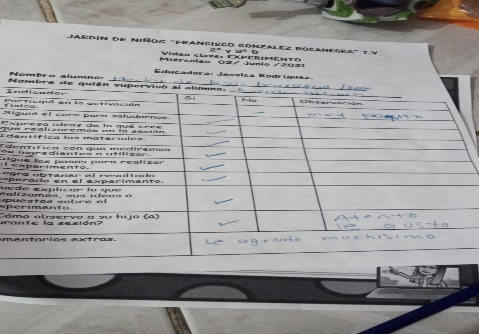 JARDIN DE NIÑOS "FRANCISCO GONZALEZ BOCANEGRA" T.V
2° y 3° D
Video clase: EXPERIMENTO
Miércoles 02/ Junio /2021
Educadora: Jessica Rodriguez.
Nombre alumno:
Nombre de quién supervisó al alumno.
Indicador Si No Observación
Participó en la activación
física.
Siguió el coro para saludarnos. muy poquito
Expresó ideas de lo que cree
que realizaremos en la sesión.
Identifica los materiales.
Identifica con que mediremos
los ingredientes a utilizar.
Sigue los pasos para realizar
el experimento.
Logra obtener el resultado
esperado en el experimento.
Puede explicar lo que
realizamos, sus ideas o
supuestos sobre el
experimento.
Cómo observo a su hijo (a)
durante la sesión? Atento
le gusto
Comentarios extras. Le agrado muchisimo